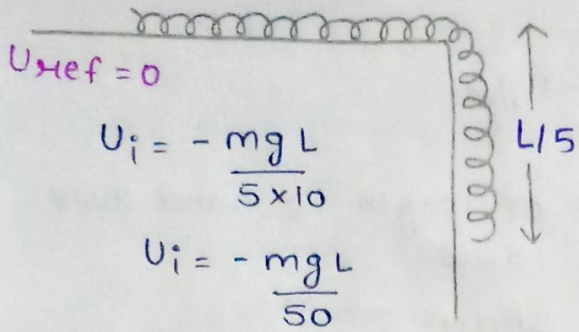 Uref = 0
L/5
Ui = - mgL / 5×10
Ui = - mgL / 50